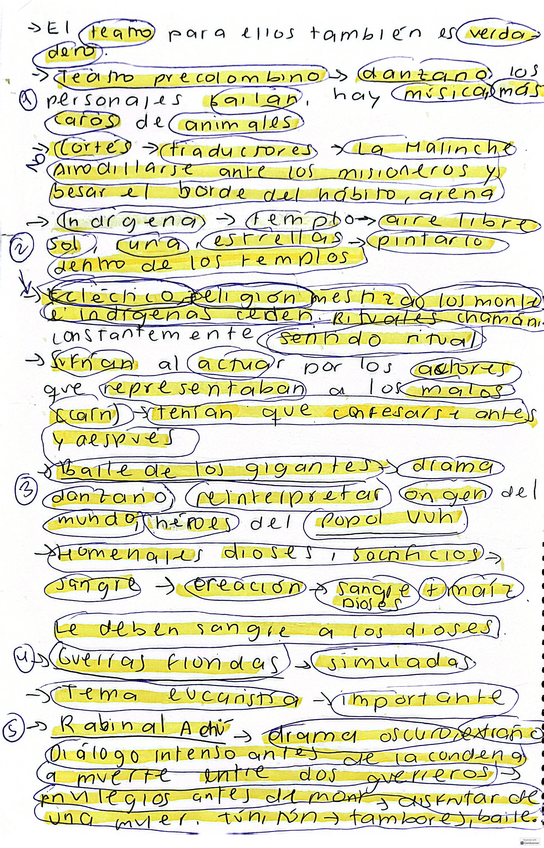 → El teatro para ellos también es verda-
dero.
→ Teatro precolombino → danzano, los
① personajes bailan, hay música, más
caras de animales
→ Cortés → traductores → La Malinche
Arrodillarse ante los misioneros y
besar el borde del hábito, arena
→ Indígena → templo → aire libre
② Sol, luna, estrellas → pintarlo
dentro de los templos
→ Ecléctico, religión mestiza, los monjes
e indígenas ceden. Rituales chamán.
constantemente sentido ritual
→ Sufrían al actuar por los actores
que representaban a los malos
→ tenían que confesarse antes
y después
→ Baile de los gigantes → drama
③ danzano, reinterpretar origen del
mundo, héroes del Popol Vuh
→ Homenajes dioses, sacrificios →
sangre → creación → sangre + maíz
Dioses
Le deben sangre a los dioses.
④ → Guerras floridas → simuladas
→ Tema eucaristía → importante
⑤ → Rabinal Achí → drama oscuro, extraño
Diálogo intenso antes de la condena
a muerte entre dos guerreros →
privilegios antes de morir → disfrutar de
una mujer. Tun, → tambores, baile.